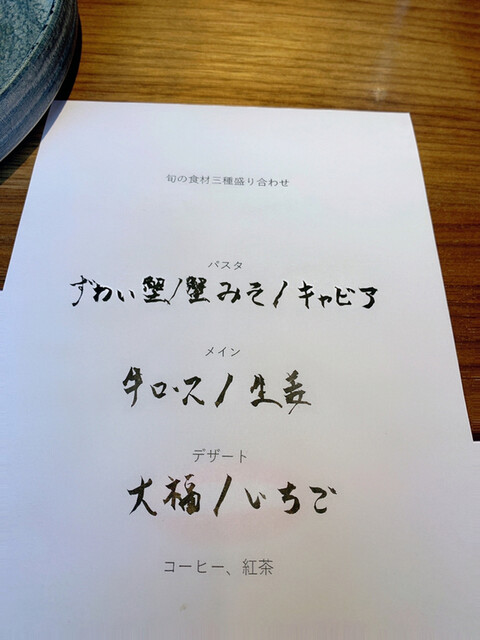 旬の食材三種盛り合わせ
パスタ
ずわい蟹/蟹みそ/キャビア
メイン
牛ロース/生姜
デザート
大福/いちご
コーヒー、紅茶